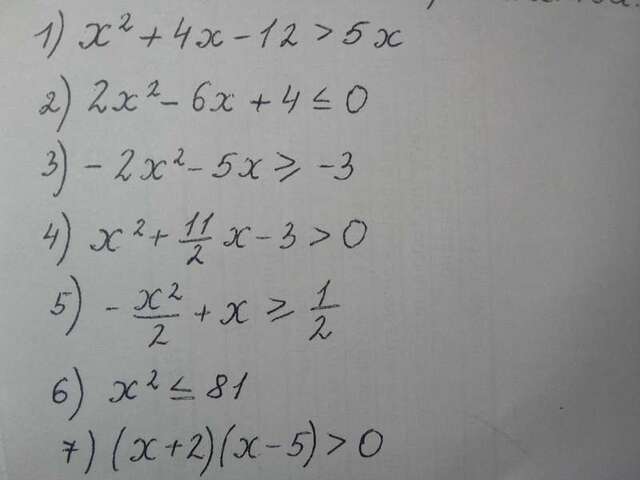 1) x² + 4x - 12 > 5x
2) 2x² - 6x + 4 ≤ 0
3) - 2x² - 5x ⩾ -3
4) x² + 11/2 x - 3 > 0
5) - x²/2 + x ⩾ 1/2
6) x² ≤ 81
7) (x+2)(x-5) > 0